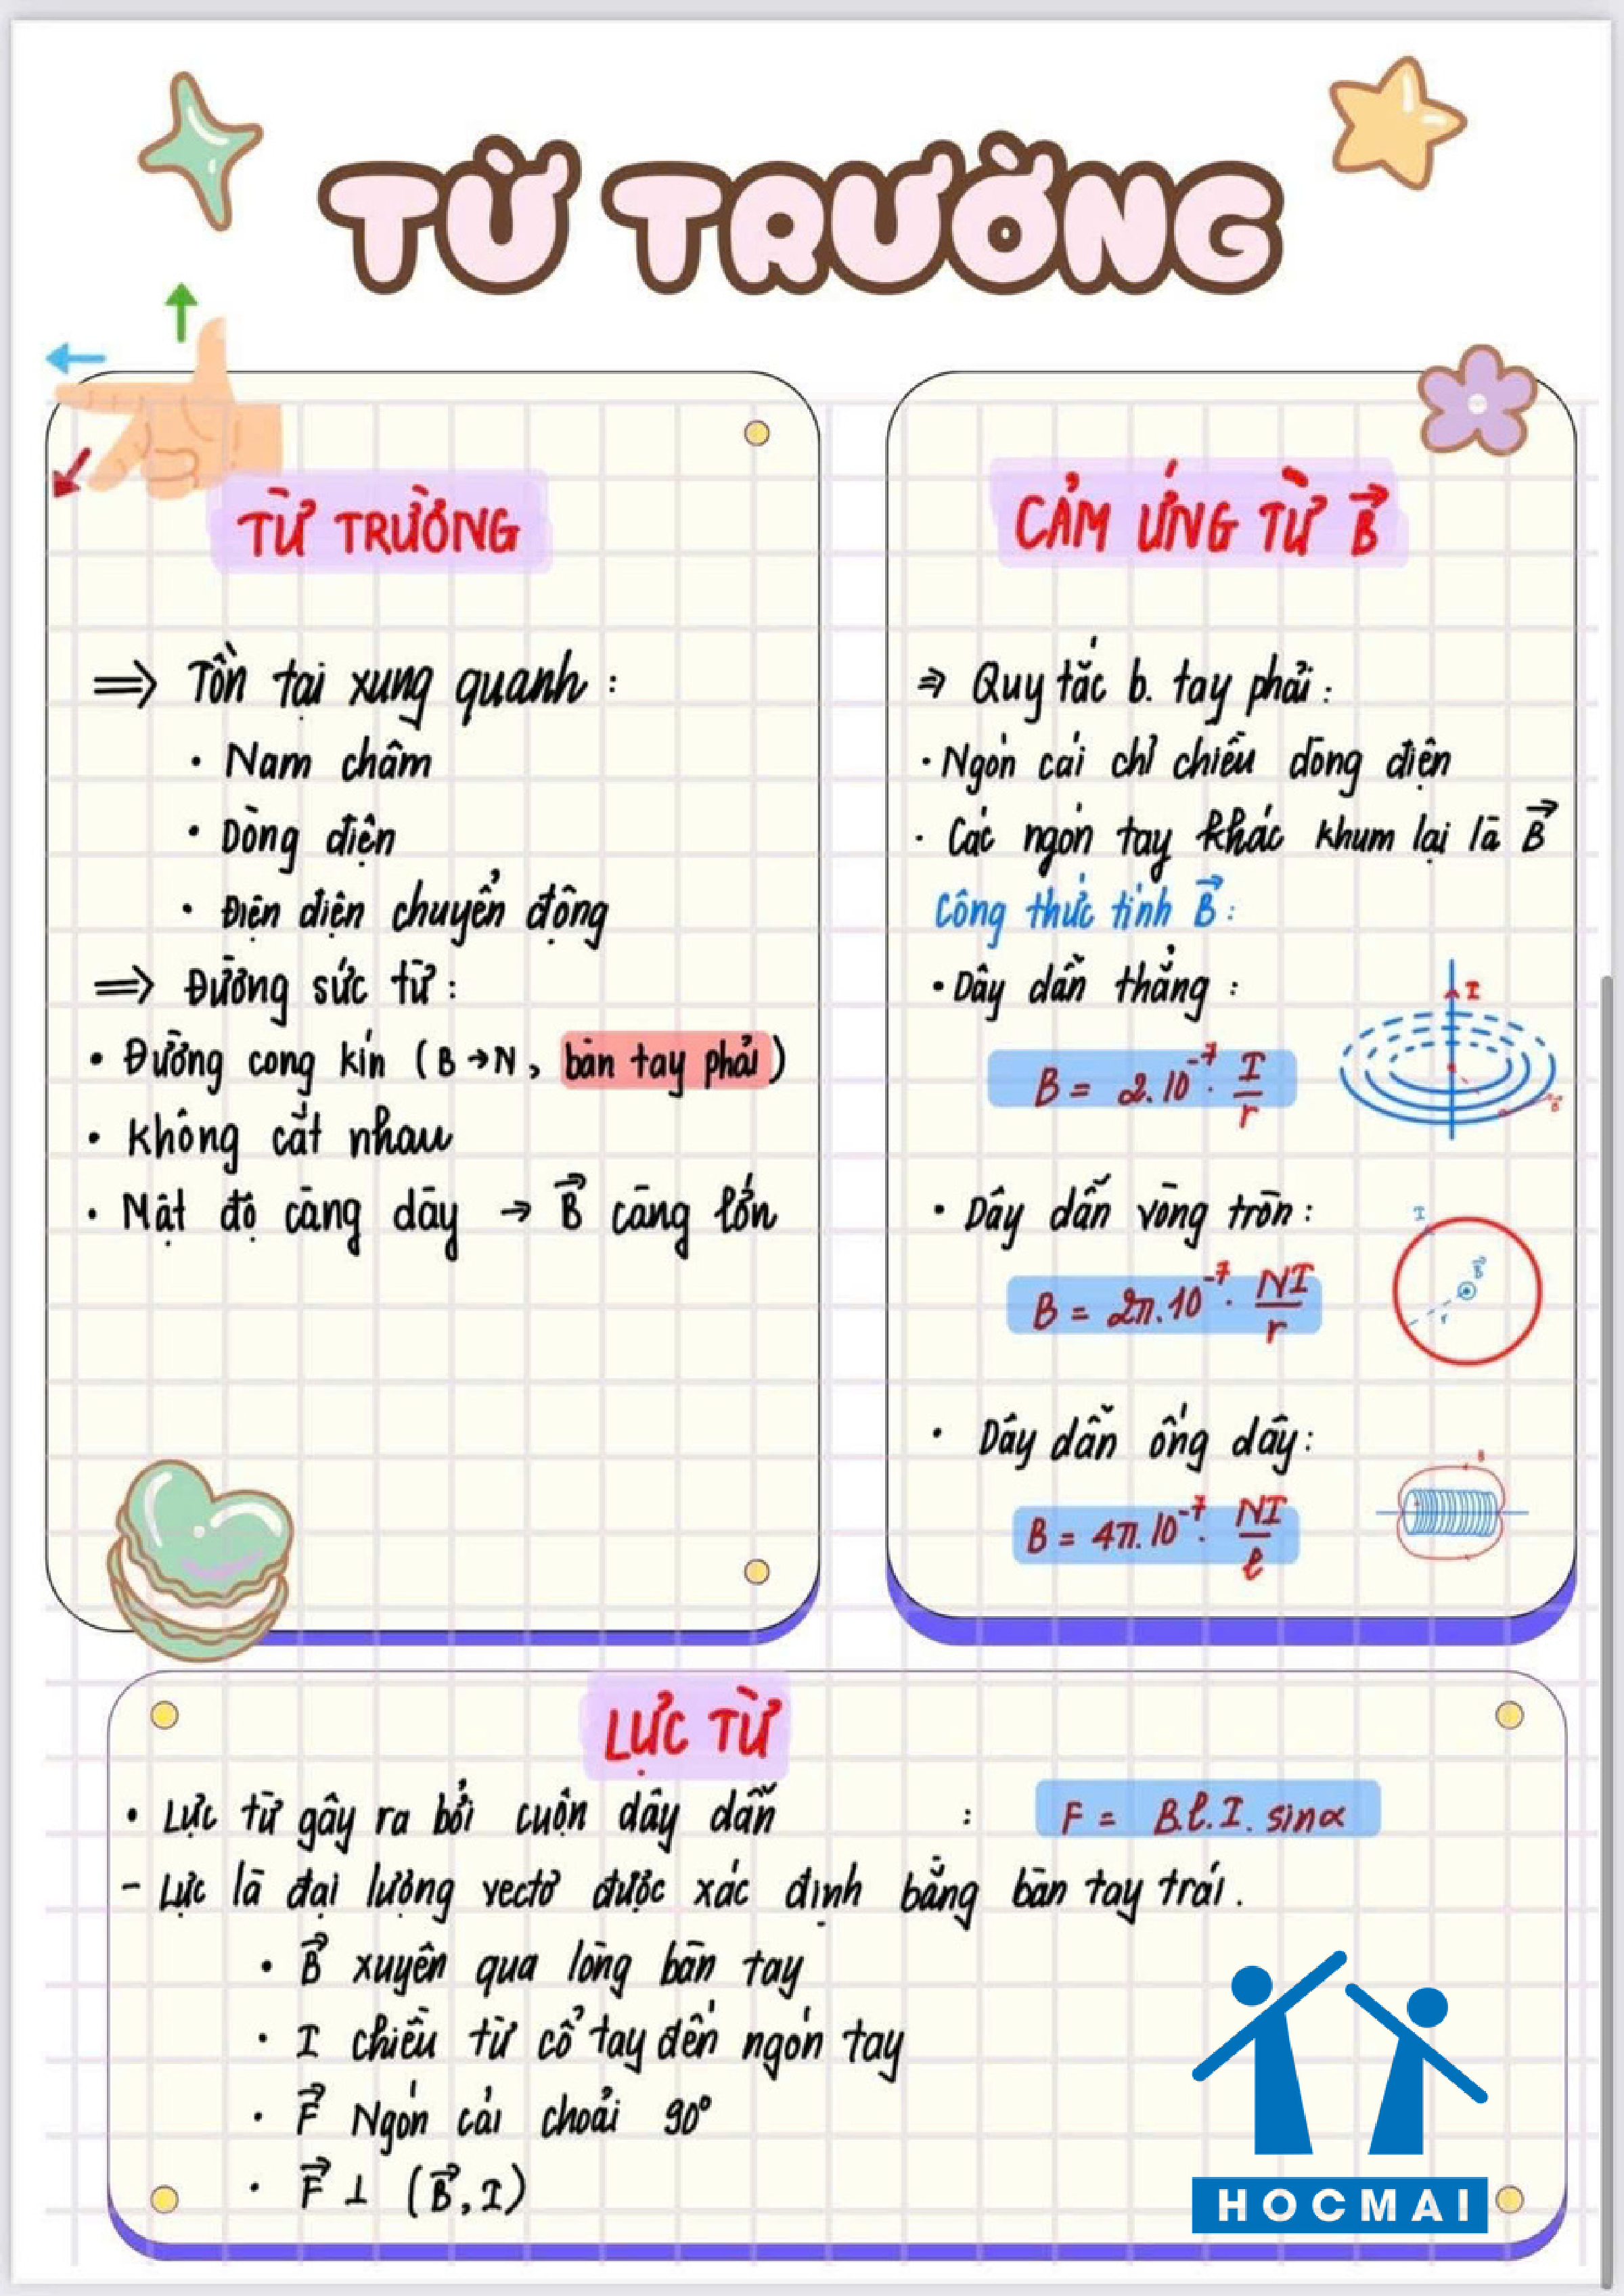 TỪ TRƯỜNG
TỪ TRƯỜNG
⇒ Tồn tại xung quanh :
• Nam châm
• Dòng điện
• Điện điện chuyển động
⇒ Đường sức từ :
• Đường cong kín (B → N, bàn tay phải)
• Không cắt nhau
• Mật độ càng dày → B⃗ càng lớn
CẢM ỨNG TỪ B⃗
⇒ Quy tắc b. tay phải :
• Ngón cái chỉ chiều dòng điện
• Các ngón tay khác khum lại là B⃗
Công thức tính B⃗ :
• Dây dẫn thẳng :
I
B = 2.10⁻⁷. I/r
B⃗
• Dây dẫn vòng tròn :
I
B⃗
r
B = 2π.10⁻⁷. NI/r
• Dây dẫn ống dây :
B
B = 4π.10⁻⁷. NI/ℓ
LỰC TỪ
• Lực từ gây ra bởi cuộn dây dẫn : F = B.ℓ.I.sinα
- Lực là đại lượng vectơ được xác định bằng bàn tay trái.
• B⃗ xuyên qua lòng bàn tay
• I chiều từ cổ tay đến ngón tay
• F⃗ Ngón cái choãi 90°
• F⃗ ⊥ (B⃗, I)
HOCMAI